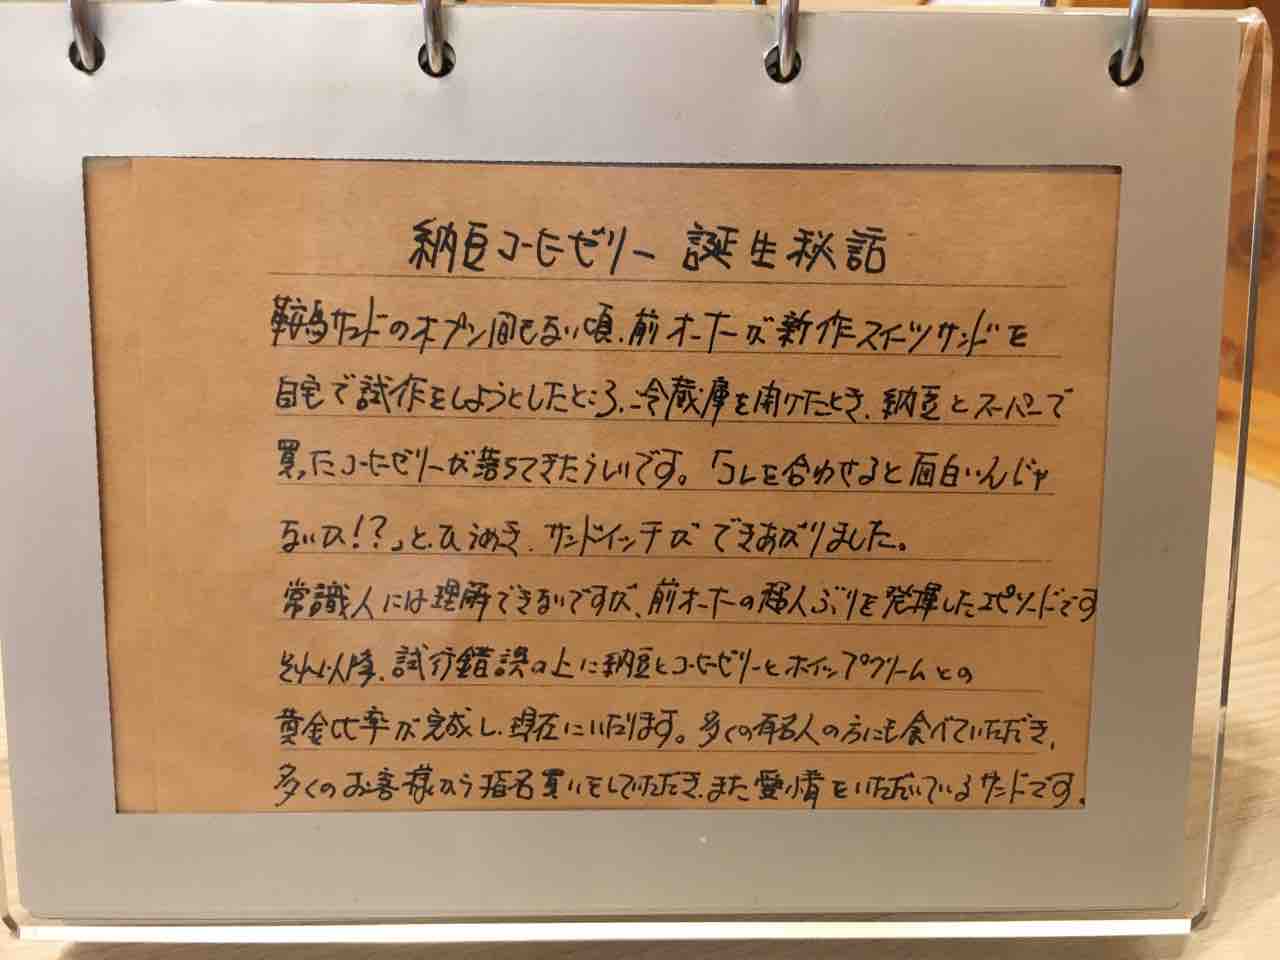 納豆コーヒーゼリー 誕生秘話
鞍馬サンドのオープン間もない頃、前オーナーが新作スイーツサンドを
自宅で試作をしようとしたところ、冷蔵庫を開けたとき、納豆とスーパーで
買ったコーヒーゼリーが落ちてきたらしいです。「コレを合わせると面白いんじゃ
ないか!?」と、ひらめき、サンドイッチができあがりました。
常識人には理解できないですが、前オーナーの超人ぶりを発揮したエピソードです
それ以降、試行錯誤の上に納豆とコーヒーゼリーとホイップクリームとの
黄金比率が完成し、現在にいたります。多くの有名人の方にも食べていただき、
多くのお客様から指名買いをしていただき、また愛情をいただいているサンドです。